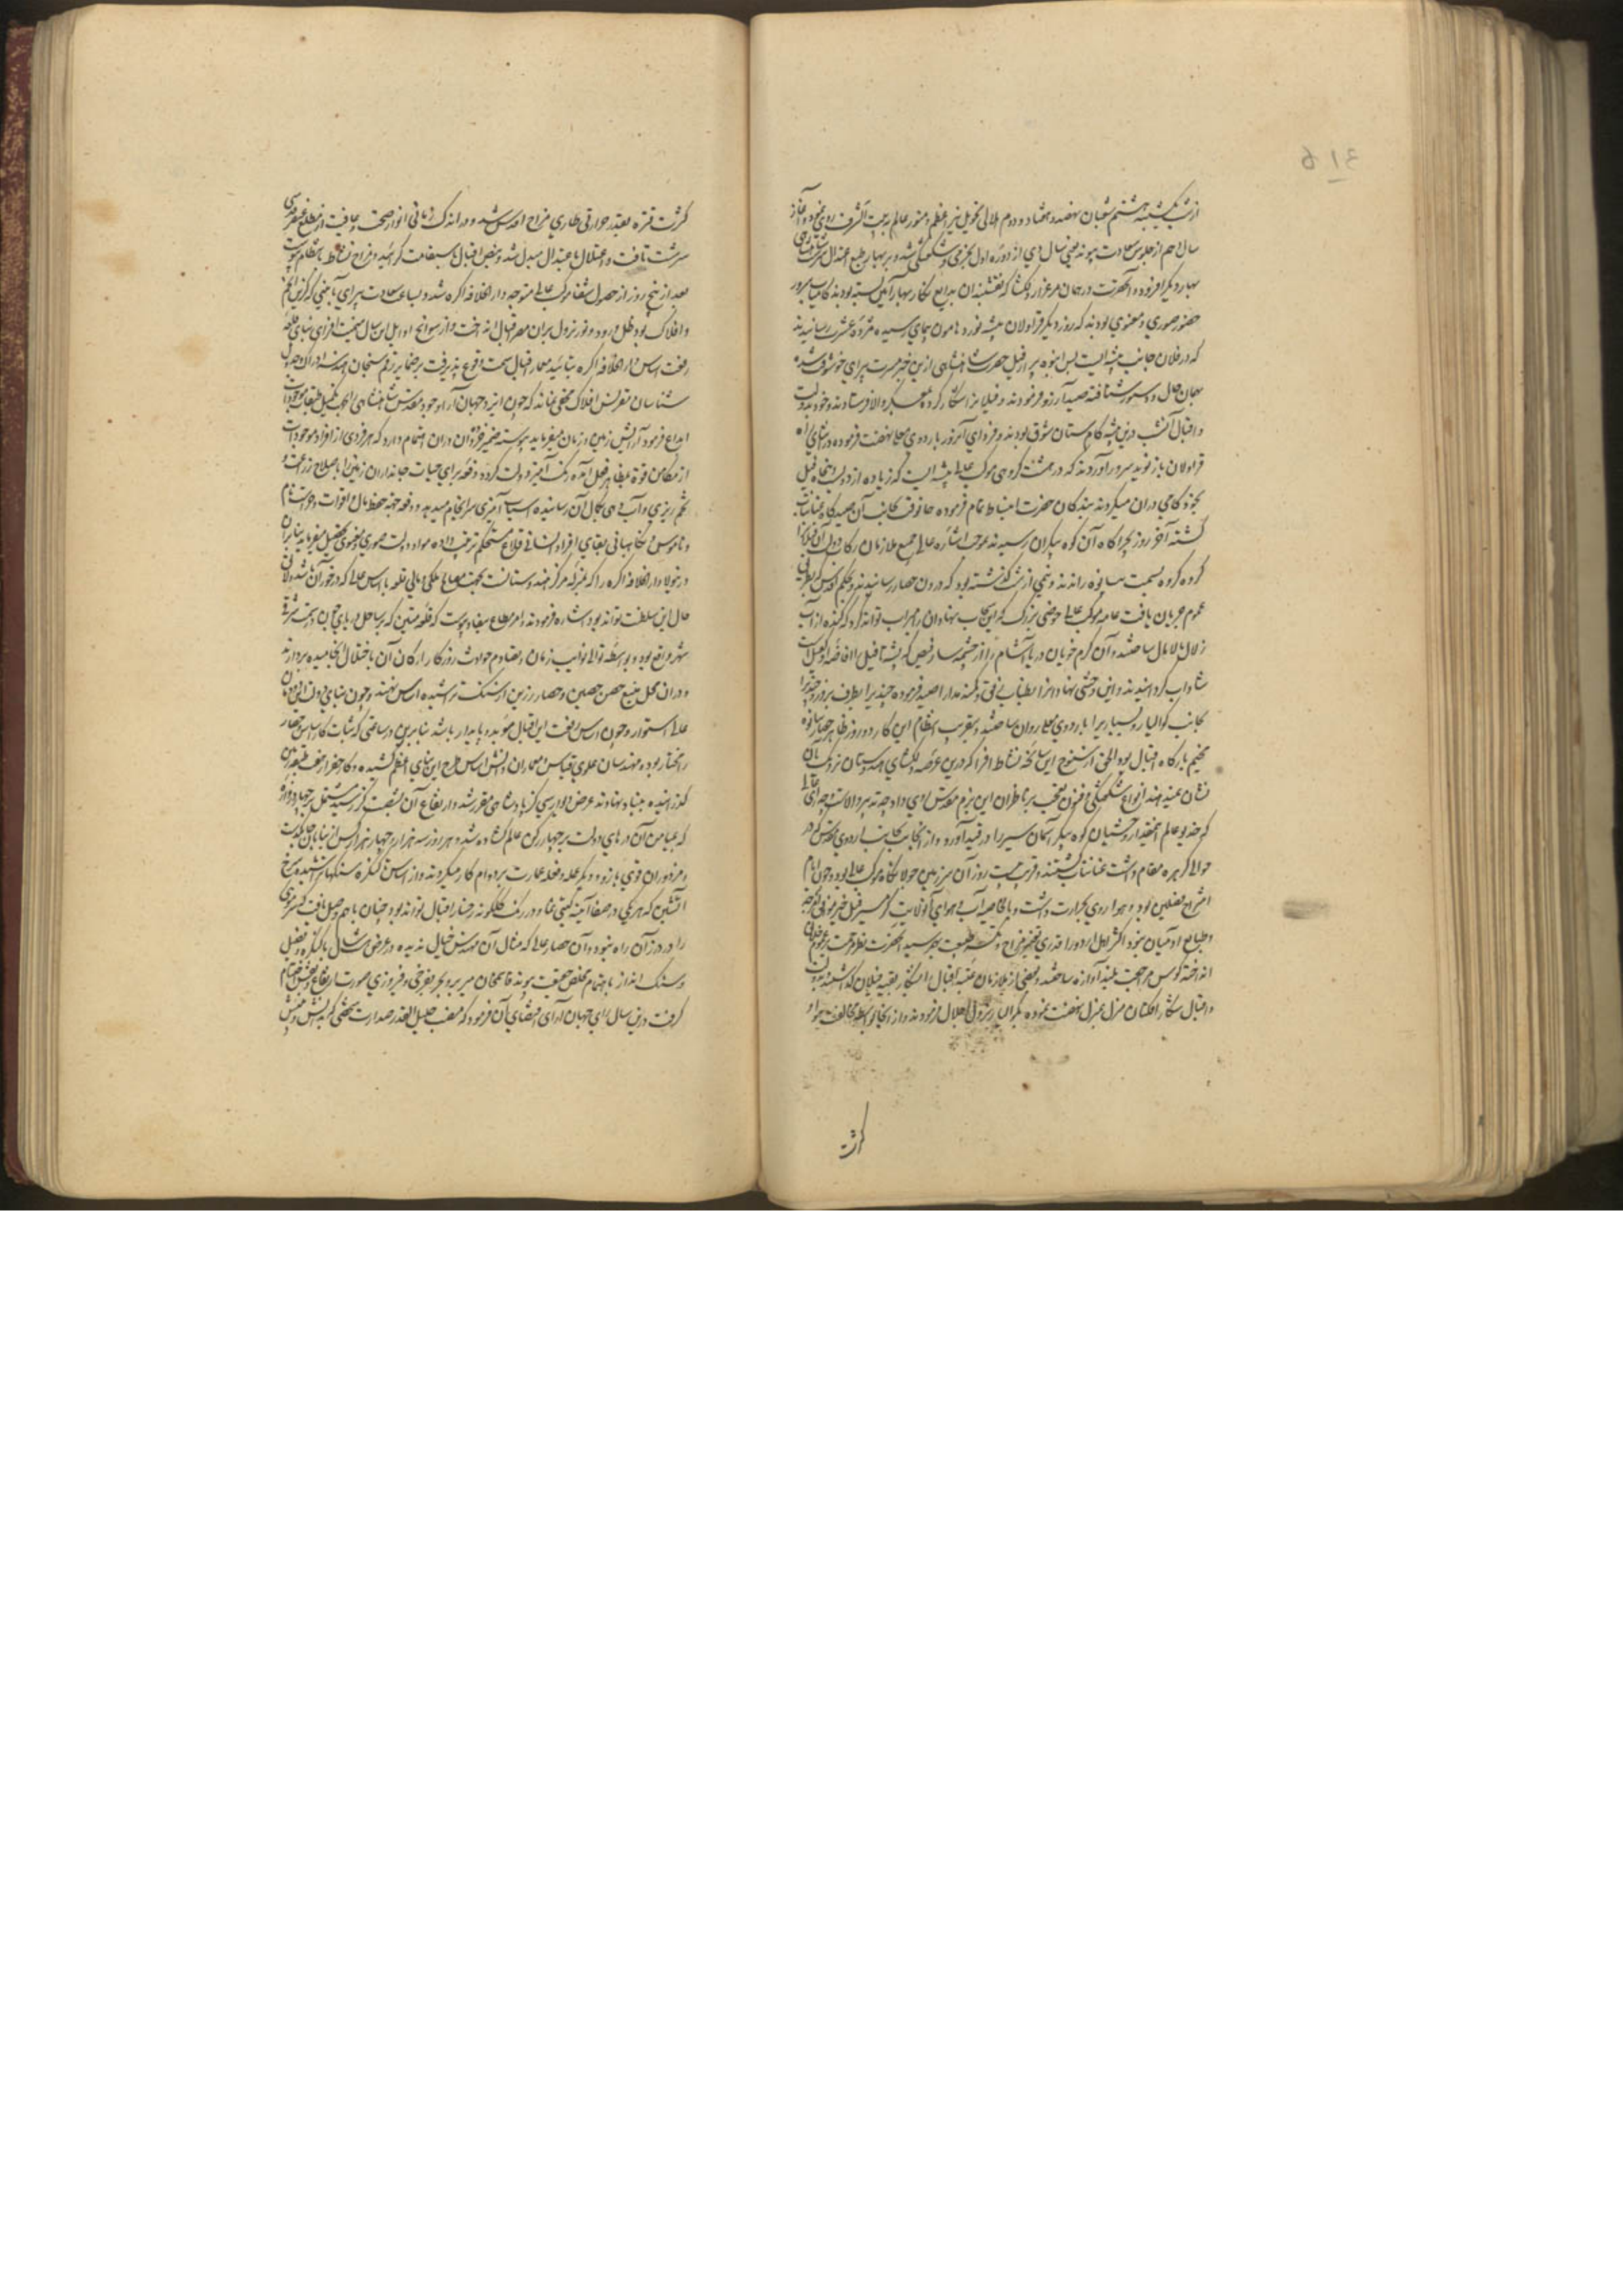 از شب یکشنبه هشتم شعبان نهصد و هفتاد و دوم هلالی تحویل نیر اعظم و منور عالم به بیت الشرف روی نمود و آغاز
سال دهم از جلوس سعادت پیوند یعنی سال دی از دوره اول بخرمی و شگفتگی شد و بر بهار طبع اعتدال سرشت
بهار دیگر افزوده و آنحضرت در همان مرغزار دلکشا که نقشبندان بدایع نگار بهار آیین بسته بودند کامیاب سرور
حضور صوری و معنوی بودند که روز دیگر قراولان بیشه نورد هامون پیمای رسیده مژده عشرت رسانیدند
که در فلان جانب بیشه ایست بس انبوه پر از فیل حضرت شاهنشاهی ازین خبر مسرت پیرای خوشوقت شده
همان حال بدستور شتافته صید آرزو فرمودند و فیلانرا شکار کرده بمعسکر والا فرستادند و خود بدولت
و اقبال آن شب درین بیشه کام ستان شوق بودند و فردای آنروز باردوی معلی نهضت فرموده در اثنای راه
قراولان باز نوید سرور آوردند که در هشت کروهی موکب عالی بیشه ایست که زیاده از دویست و پنجاه فیل
بخودکامی دران میگردند بندگان حضرت انبساط تمام فرموده همانوقت بجانب آن صیدگاه عنانتاب
گشته آخر روز بچراگاه آن کوه پیکران رسیدند بموجب اشاره عالی جمیع ملازمان رکاب دولت آن فیلانرا
گروه گروه بسمت بیانوه راندند و نیمی از شب گذشته بود که درون حصار رسانیدند و بحکم اقدس که بطریق
عموم جریان یافت عامه موکب عالی حوضی بزرگ که این سحاب نهادان را سیراب تواند کرد کنده از آب
زلال مالامال ساختند و آن گرم خویان دریا آشام را از چشمه سار فیض که پشتا فیل را افاضه او کفیل است
شاداب گردانیدند و این وحشی نهادانرا بطناب رفق و کمند مدارا صید فرموده چندیرا بطرف و چندیرا
بجانب گوالیار و بسیاریرا باردوی معلی روان ساختند و بتقریب انتظام این کار دو روز ظاهر حصار بیانوه
مخیم بارگاه اقبال بود الحق از سنوح این سانحه نشاط افزا که درین عرصه دلکشای هندوستان نزدیک بآن
نشان نمیدهند انواع شگفتگی و فنون تعجب بر ناظران این بزم مقدس روی داد چه تدبیر والاست و چه رای عالی
که خدیو عالم اینقدر وحشیان کوه پیکر آسمان سیر را در قید آورد و از آنجا بجانب اردوی مقدس که در
حوالی کرهره مقام داشت عنانتاب گشتند و قریب بیست روز آن سرزمین جولانگاه موکب عالی بود و چون ایام
امتزاج فصلین بود و هوا روی بحرارت داشت و بالخاصیه آب و هوای آنولایت گرمسیر فیل خیز موافق امزجه
و طباع آدمیان نبود اکثر اهل اردو را قدری تغیر مزاج و تکسر طبیعت بهم رسید آنحضرت نظر مرحمت بر عموم خلایق
انداخته کوس مراجعت بلند آوازه ساختند و بعضی از ملازمان عتبه اقبال را بشکار بقیه فیلان گذاشتند و بدولت
و اقبال شکار افکنان منزل بمنزل نهضت نموده بگوالیار نزول اجلال فرمودند و از آنجا بواسطه مخالفت هوا و
کثرت
کثرت تردد بقدر حرارتی طاری مزاج اقدس شد و در اندک زمانی انوار صحت و عافیت از مطلع عنصر قدسی
سرشت تافت و اختلال باعتدال مبدل شد و نبض اقبال باستقامت گرائید و مزاج نشاط بانتظام پیوست
بعد از پنج روز از حصول شفا موکب عالی متوجه دار الخلافه اگره شد و بساعت سعادت پیرای بآیینی که گزین انجم
و افلاک بود ظل ورود و نور نزول بران مصر اقبال انداخت و از سوانح اوایل این سال میمنت افزای بنای قلعه
رفعت اساس دار الخلافه اگره بتائید معمار اقبال سمت وقوع پذیرفت بر ضمایر ترقم سنجان هندسه ادراک و جدول
شناسان تقرنس افلاک مخفی نماند که چون ایزد جهان آرا وجود مقدس شاهنشاهی را بجهت تکمیل طبقات موجودات
ابداع فرمود آرایش زمین و زمان میفرماید پیوسته ضمیر فیض قرین دران اهتمام دارد که هر فردی از افراد موجودات
از مکامن قوه بمظاهر فعل آمده رنگ آمیز دولت گردد و دفعه برای حیات جانداران زمین را باصلاح زراعت و
تخم ریزی و آب دهی بکمال آن رسانیده اسباب آمیزی سرانجام میدهد و دفعه جهة حفظ مال و اقوات و احتشام
و ناموس و نگاهبانی بقای افراد انسانی قلاع مستحکم ترتیب داده مواد دولت صوری و معنوی تحصیل میفرماید بنابران
درینولا دار الخلافه اگره را که بمنزله مرکز هندوستانست بجهت مصالح ملکی و مالی قلعه با اساس عالی که در خور آن باشد و لایق
حال این سلطنت تواند بود اشاره فرمودند و امر مطاع بنفاذ پیوست که قلعه متین که بر ساحل دریای جون در سمت شرقی
شهر واقع بود و بواسطه توالی نوایب زمان و تصادم حوادث روزگار ارکان آن باختلال انجامیده بردارند
و دران محل منیع حصن حصین و حصار رزین از سنگ تراشیده اساس نهند و چون بنای دولت ابدی دودمان
عالی استوار و چون اساس رفعت این اقبال مؤبد و پایدار باشد بنابرین در ساعتی که ثبات کار اساس و حصار
را مختار بود مهندسان علوی قیاس و معماران دانش اساس طرح این بنای اعظم کشیده و کار حفر از هفت طبقه زمین
گذرانیده بنیاد نهادند عرض دیوار سی گز پادشاهی مقرر شد و ارتفاع آن بشصت گز رسید مشتمل بر چهار دروازه
که بمیامن آن درهای دولت بر چهار رکن عالم گشاده شد و هر روز سه هزار و چهار هزار کس از بنایان چابکدست
و مزدوران قوی بازو و دیگر عمله و فعله عمارت بر دوام کار میکردند و از اساس تا کنگره سنگهای تراشیده سرخ
آتشین که هر یکی در صفا آیینه گیتی نما و در رنگ گلگونه رخسار اقبال تواند بود چنان باهم وصل یافت که سر موی
را در درز آن راه نبود و آن حصار عالی که مثال آن مهندس خیال ندیده در عرض هشت سال با کنگره و فصیل
و سنگ انداز باهتمام مخلص حقیقت پیوند قاسمخان میر بر و بحر بفرخی و فیروزی صورت ارتفاع و نقش اختتام
گرفت درین سال رای جهان آرای اقتضای آن فرمود که منصب جلیل القدر صدارت بشخصی که بدانش و بینش